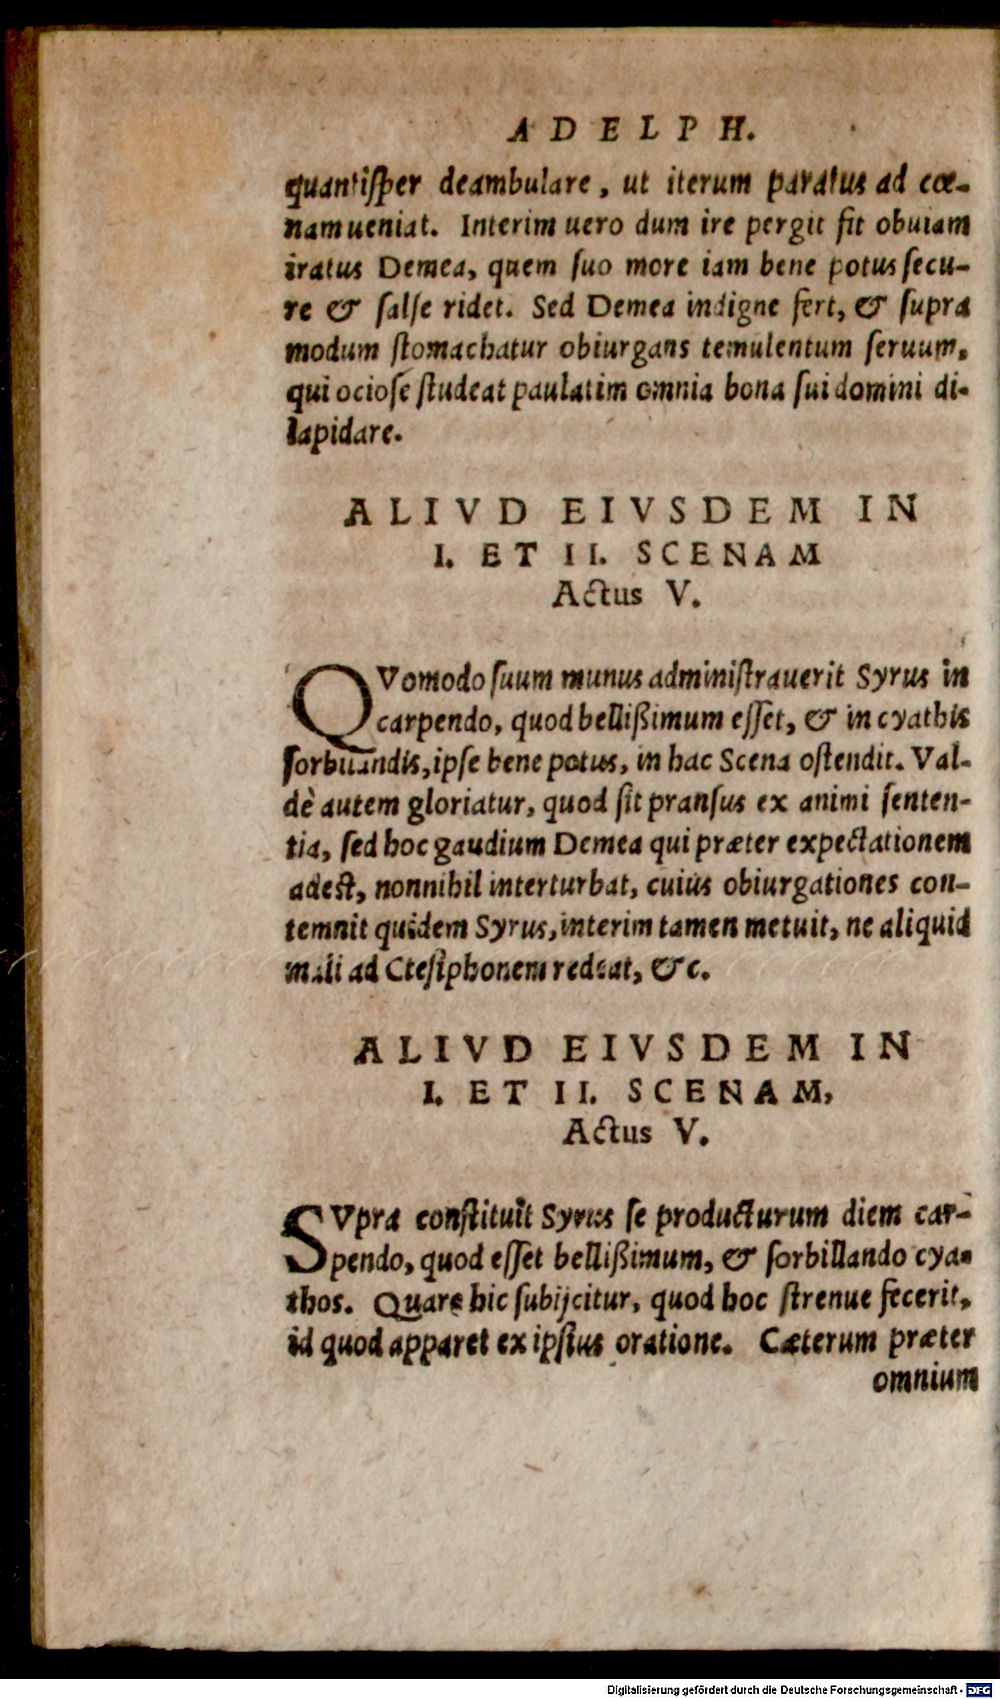 ADELPH.
quantiſper deambulare, ut iterum paratus ad cœ-
nam ueniat. Interim uero dum ire pergit fit obuiam
iratus Demea, quem ſuo more iam bene potus ſecu-
re & ſalſe ridet. Sed Demea indigne fert, & ſupra
modum ſtomachatur obiurgans temulentum ſeruum,
qui ocioſe ſtudeat paulatim omnia bona ſui domini di-
lapidare.
ALIVD EIVSDEM IN
I. ET II. SCENAM
Actus V.
QVomodo ſuum munus adminiſtrauerit Syrus in
carpendo, quod belliſſimum eſſet, & in cyathis
ſorbillandis, ipſe bene potus, in hac Scena oſtendit. Val-
dè autem gloriatur, quod ſit pranſus ex animi ſenten-
tia, ſed hoc gaudium Demea qui præter expectationem
adeſt, nonnihil interturbat, cuius obiurgationes con-
temnit quidem Syrus, interim tamen metuit, ne aliquid
mali ad Cteſiphonem redeat, &c.
ALIVD EIVSDEM IN
I. ET II. SCENAM,
Actus V.
SVpra conſtituit Syrus ſe producturum diem car-
pendo, quod eſſet belliſſimum, & ſorbillando cya-
thos. Quare hic ſubijcitur, quod hoc ſtrenue fecerit,
id quod apparet ex ipſius oratione. Cæterum præter
omnium
Digitalisierung gefördert durch die Deutsche Forschungsgemeinschaft - DFG